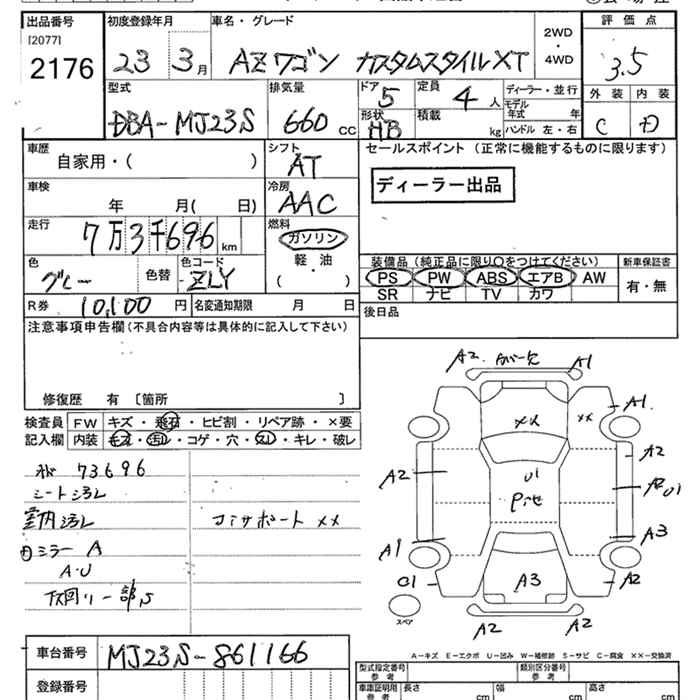 出品番号 初度登録年月 車名・グレード 2WD・4WD 評価点
[2077]
2176 23 3月 AZワゴン カスタムスタイルXT 3.5
型式 排気量 ドア 定員 ディーラー・並行 外装 内装
DBA-MJ23S 660 CC 5 4人 モデル年式 年 C D
形状 積載 ハンドル 左・右
HB kg
車歴 シフト セールスポイント（正常に機能するものに限ります）
自家用・（ ） AT
車検 冷房 ディーラー出品
年 月（ 日） AAC
走行 燃料
7万3千696km ガソリン
軽・油
（ ）
装備品（純正品に限り○をつけてください） 新車保証書
色 色替 色コード PS PW ABS エアB AW 有・無
グレー ZLY SR ナビ TV カワ
R券 10,100円 名変通知期限 月 日 後日品
注意事項申告欄（不具合内容等は具体的に記入して下さい）
修復歴 有 〔箇所 〕
検査員 FW キズ・飛石・ヒビ割・リペア跡・×要
記入欄 内装 キズ・汚レ・コゲ・穴・スレ・キレ・破レ
73696
シート汚レ
室内汚レ コアサポート ××
ミラー A
A・U
A2 A1
×× ×× A1
A2 U1 A2
A2 U1
A1 A3
U1 A3 A2
スペア A2 A2
A－キズ E－エクボ U－凹み W－補修跡 S－サビ C－腐食 ××－交換済
車台番号 MJ23S-861166
登録番号
型式指定番号 参考 類別区分番号 参考
車庫証明用 参考 長さ cm 幅 cm 高さ cm